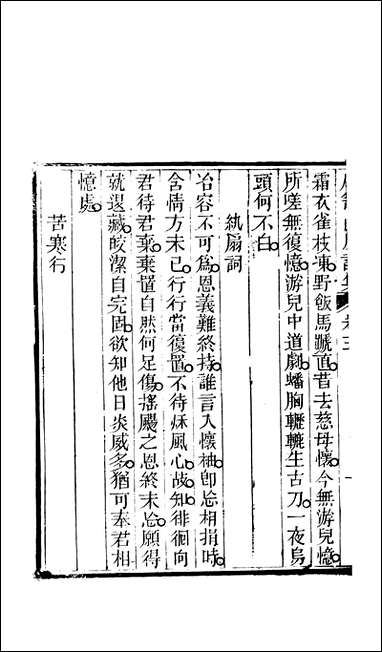 霜衣雀枝凍野飯馬蹏道昔去慈母懷今無游兒憶
所嗟無復憶游兒中道劇蟠胸轣轆生古刀一夜烏
頭何不白
紈扇詞
冶容不可爲恩義難終持誰言入懷袖卽忩相捐時
含情方未已行行當復置不待秌風心故知徘徊向
君待君棄棄置自然何足傷搖颺之恩終未忩願得
就邊藏皎潔自完固欲知他日炎威多猶可奉君相
憶處
苦寒行